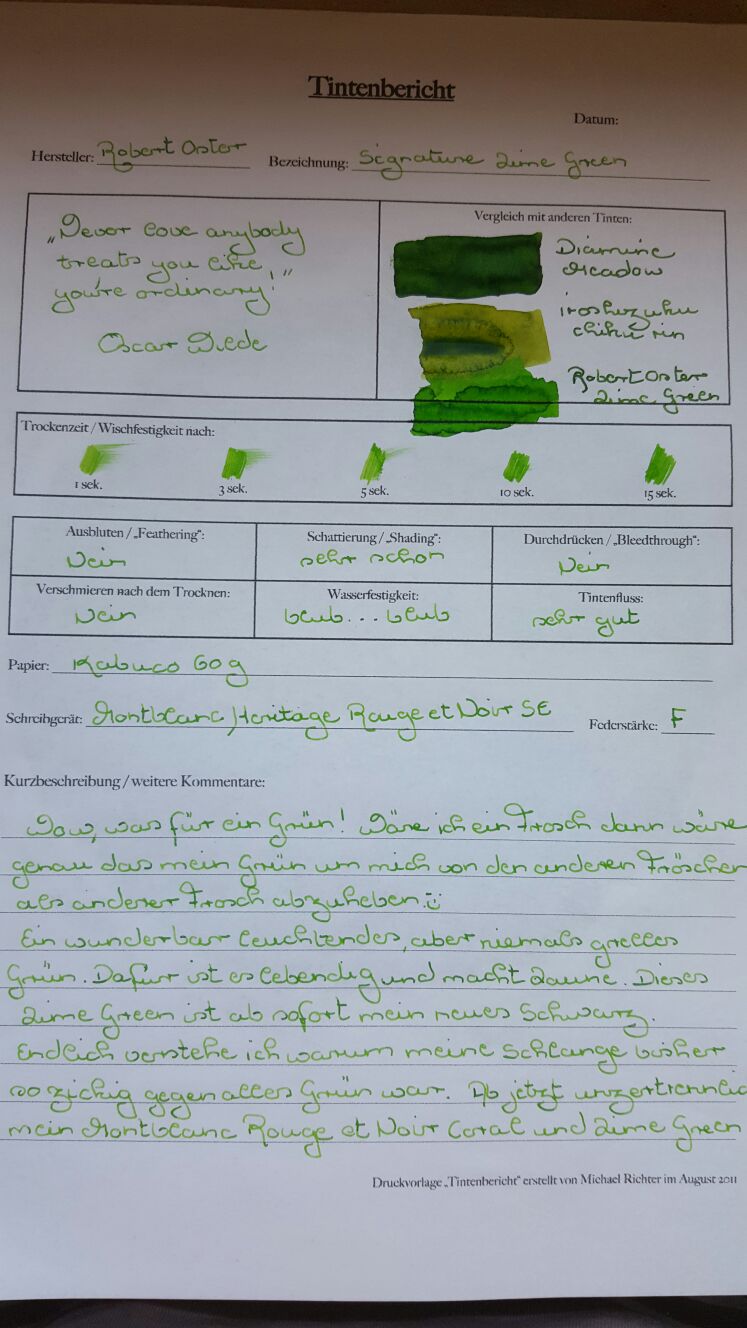 Tintenbericht
Datum:
Hersteller: Robert Oster Bezeichnung: Signature Lime Green
„Never love anybody
treats you like,
you're ordinary!"
Oscar Wilde
Vergleich mit anderen Tinten:
Diamine
Meadow
iroshizuku
chiku rin
Robert Oster
Lime Green
Trockenzeit / Wischfestigkeit nach:
1 sek. 3 sek. 5 sek. 10 sek. 15 sek.
Ausbluten / „Feathering": Schattierung / „Shading": Durchdrücken / „Bleedthrough":
Nein sehr schön Nein
Verschmieren nach dem Trocknen: Wasserfestigkeit: Tintenfluss:
Nein blub... blub sehr gut
Papier: Kabuco 60g
Schreibgerät: Montblanc, Heritage Rouge et Noir SE Federstärke: F
Kurzbeschreibung / weitere Kommentare:
Wow, was für ein Grün! Wäre ich ein Frosch dann wäre
genau das mein Grün um mich von den anderen Fröschen
als anderer Frosch abzuheben.
Ein wunderbar leuchtendes, aber niemals grelles
Grün. Dafür ist es lebendig und macht Laune. Dieses
Lime Green ist ab sofort mein neues Schwarz.
Endlich verstehe ich warum meine Schlange bisher
so zickig gegen alles Grün war. Ab jetzt unzertrennlic
mein Montblanc Rouge et Noir Coral und Lime Green
Druckvorlage „Tintenbericht" erstellt von Michael Richter im August 2011